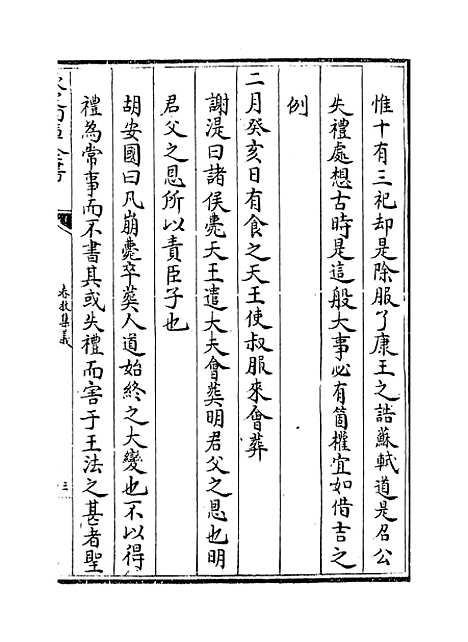 惟十有三祀却是除服了康王之誥蘇軾道是召公
失禮處想古時是這般大事必有箇權宜如借吉之
例
二月癸亥日有食之天王使叔服來會葬
謝湜曰諸侯薨天王遣大夫會葬明君父之恩也明
君父之恩所以責臣子也
胡安國曰凡崩薨卒葬人道始終之大變也不以得
禮為常事而不書其或失禮而害于王法之甚者聖
春秋集義
三